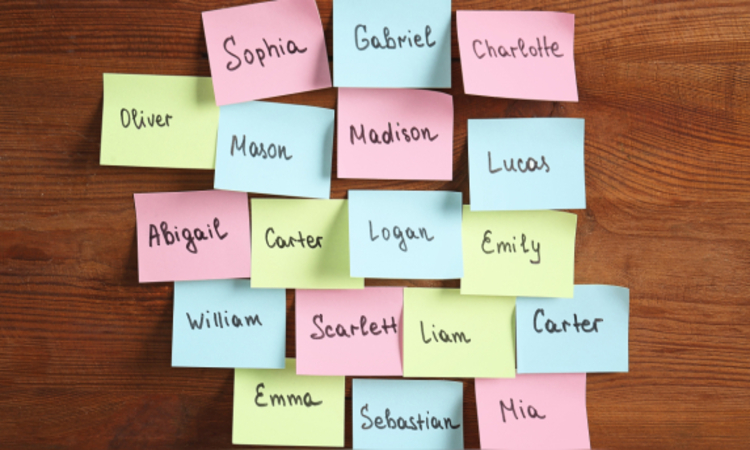 Sophia
Gabriel
Charlotte
Oliver
Mason
Madison
Lucas
Abigail
Carter
Logan
Emily
William
Scarlett
Liam
Carter
Emma
Sebastian
Mia